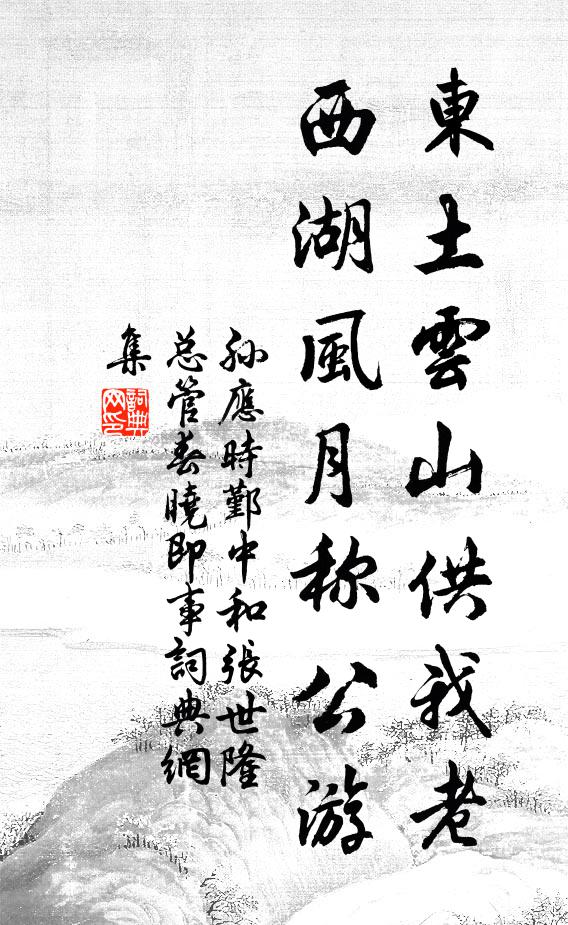 東土雲山供我老
西湖風月称公游
孫應時鄞中和張世隆
总管春曉即事詞典網
集
詞典
网印